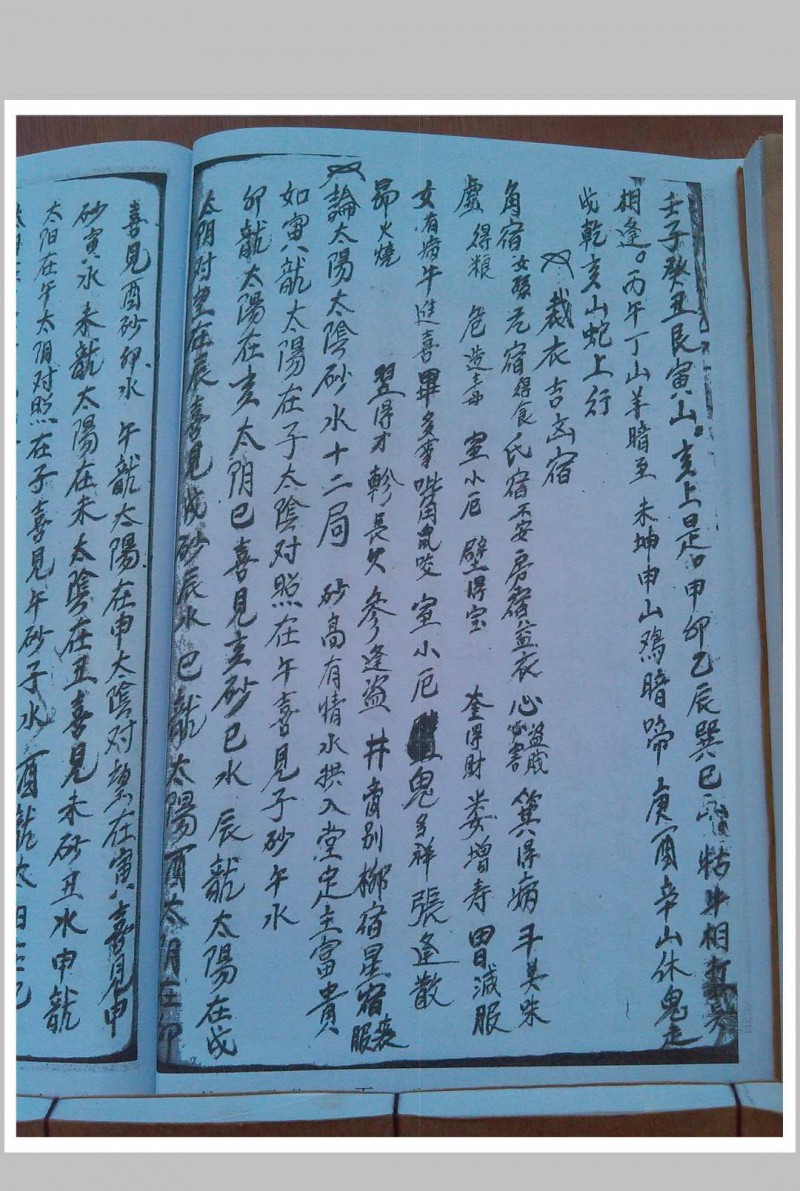 壬子癸丑艮寅山。亥上是。甲卯乙辰巽巳 牯牛相打
相逢。丙午丁山羊暗至 未坤申山鸡暗啼 庚酉辛山休鬼走
戌乾亥山蛇上行
裁衣吉凶宿
角宿 亢宿得食 氏宿不安 房宿益衣 心盗贼 箕得病 斗美味
虚得粮 危造毒 室小厄 壁得宝 奎得财 娄增寿 胃减服
女有病 牛進喜 畢多事 鼠咬 室小厄 鬼多祥 張逢散
昴火燒 翌得才 軫長久 參逢盗 井 别 柳宿星宿喪服
論太陽太陰砂水十二局 砂高有情水拱入堂定主富貴
如寅龍太陽在子太陰对照在午喜見子砂午水
卯龍太陽在亥太阴巳喜見亥砂巳水 辰龍太陽在戌
太阴对 在辰喜見戌砂辰水 巳龍太陽酉太阴在卯
喜見酉砂卯水 午龍太陽在申太陰对 在寅喜見申
砂寅水 未龍太陽在未太陰在丑喜見未砂丑水申龍
太阳在午太阴对照在子喜見午砂子水 酉龍太阳在巳